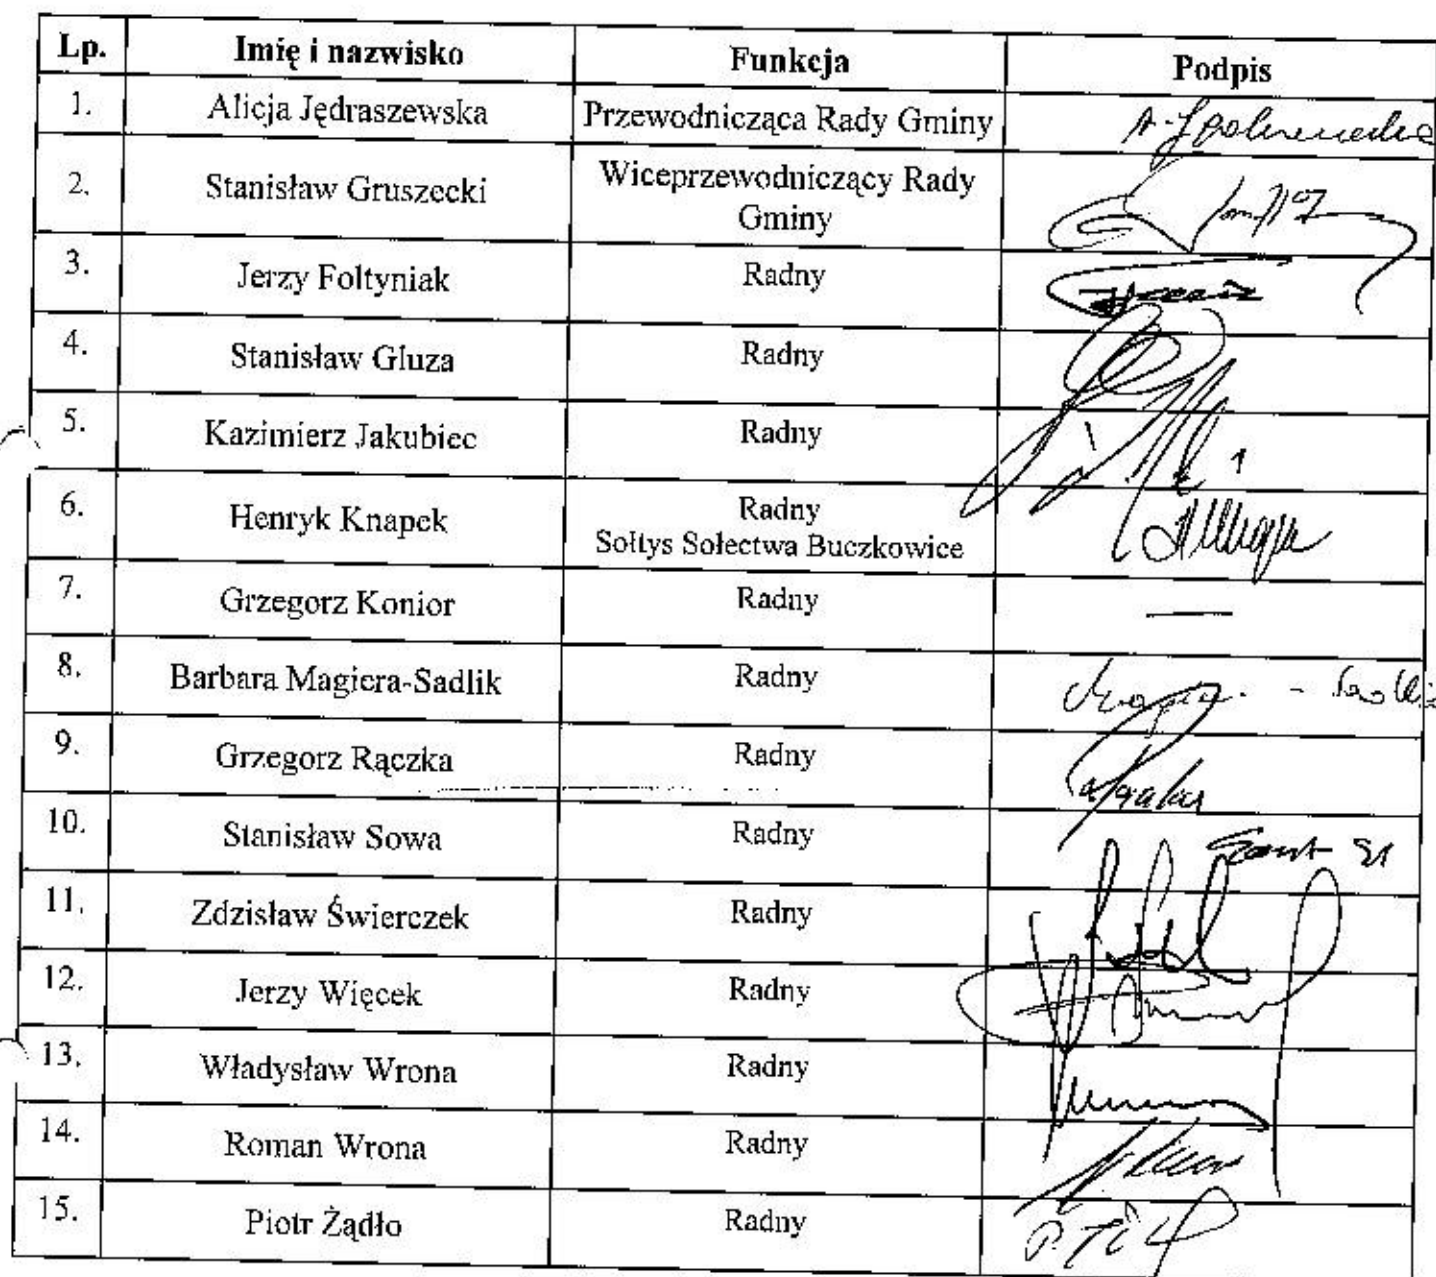 Lp. Imię i nazwisko Funkcja Podpis
1. Alicja Jędraszewska Przewodnicząca Rady Gminy
2. Stanisław Gruszecki Wiceprzewodniczący Rady
Gminy
3. Jerzy Foltyniak Radny
4. Stanisław Gluza Radny
5. Kazimierz Jakubiec Radny
6. Henryk Knapek Radny
Sołtys Sołectwa Buczkowice
7. Grzegorz Konior Radny —
8. Barbara Magiera-Sadlik Radny
9. Grzegorz Rączka Radny
10. Stanisław Sowa Radny
11. Zdzisław Świerczek Radny
12. Jerzy Więcek Radny
13. Władysław Wrona Radny
14. Roman Wrona Radny
15. Piotr Żądło Radny